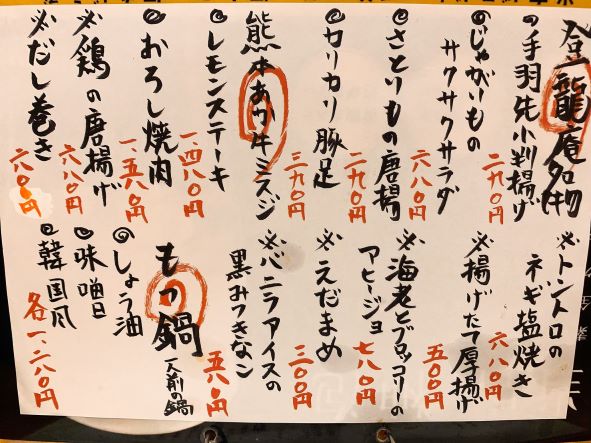 登龍庵名物
◎手羽先小判揚げ
二九〇円
◎じゃがいもの
サクサクサラダ
六八〇円
◎さとりもの唐揚
二九〇円
◎カリカリ豚足
三九〇円
熊本あか牛ミスジ
◎レモンステーキ
一、四八〇円
◎おろし焼肉
一、五八〇円
※鶏の唐揚げ
六八〇円
※だし巻き
六〇〇円
※トントロの
ネギ塩焼き
六八〇円
※揚げたて厚揚げ
五〇〇円
※海老とブロッコリーの
アヒージョ
七八〇円
※えだまめ
三〇〇円
※バニラアイスの
黒みつきなこ
五八〇円
もつ鍋
一人前の鍋
◎しょう油
◎味噌
◎韓国風
各一、二八〇円